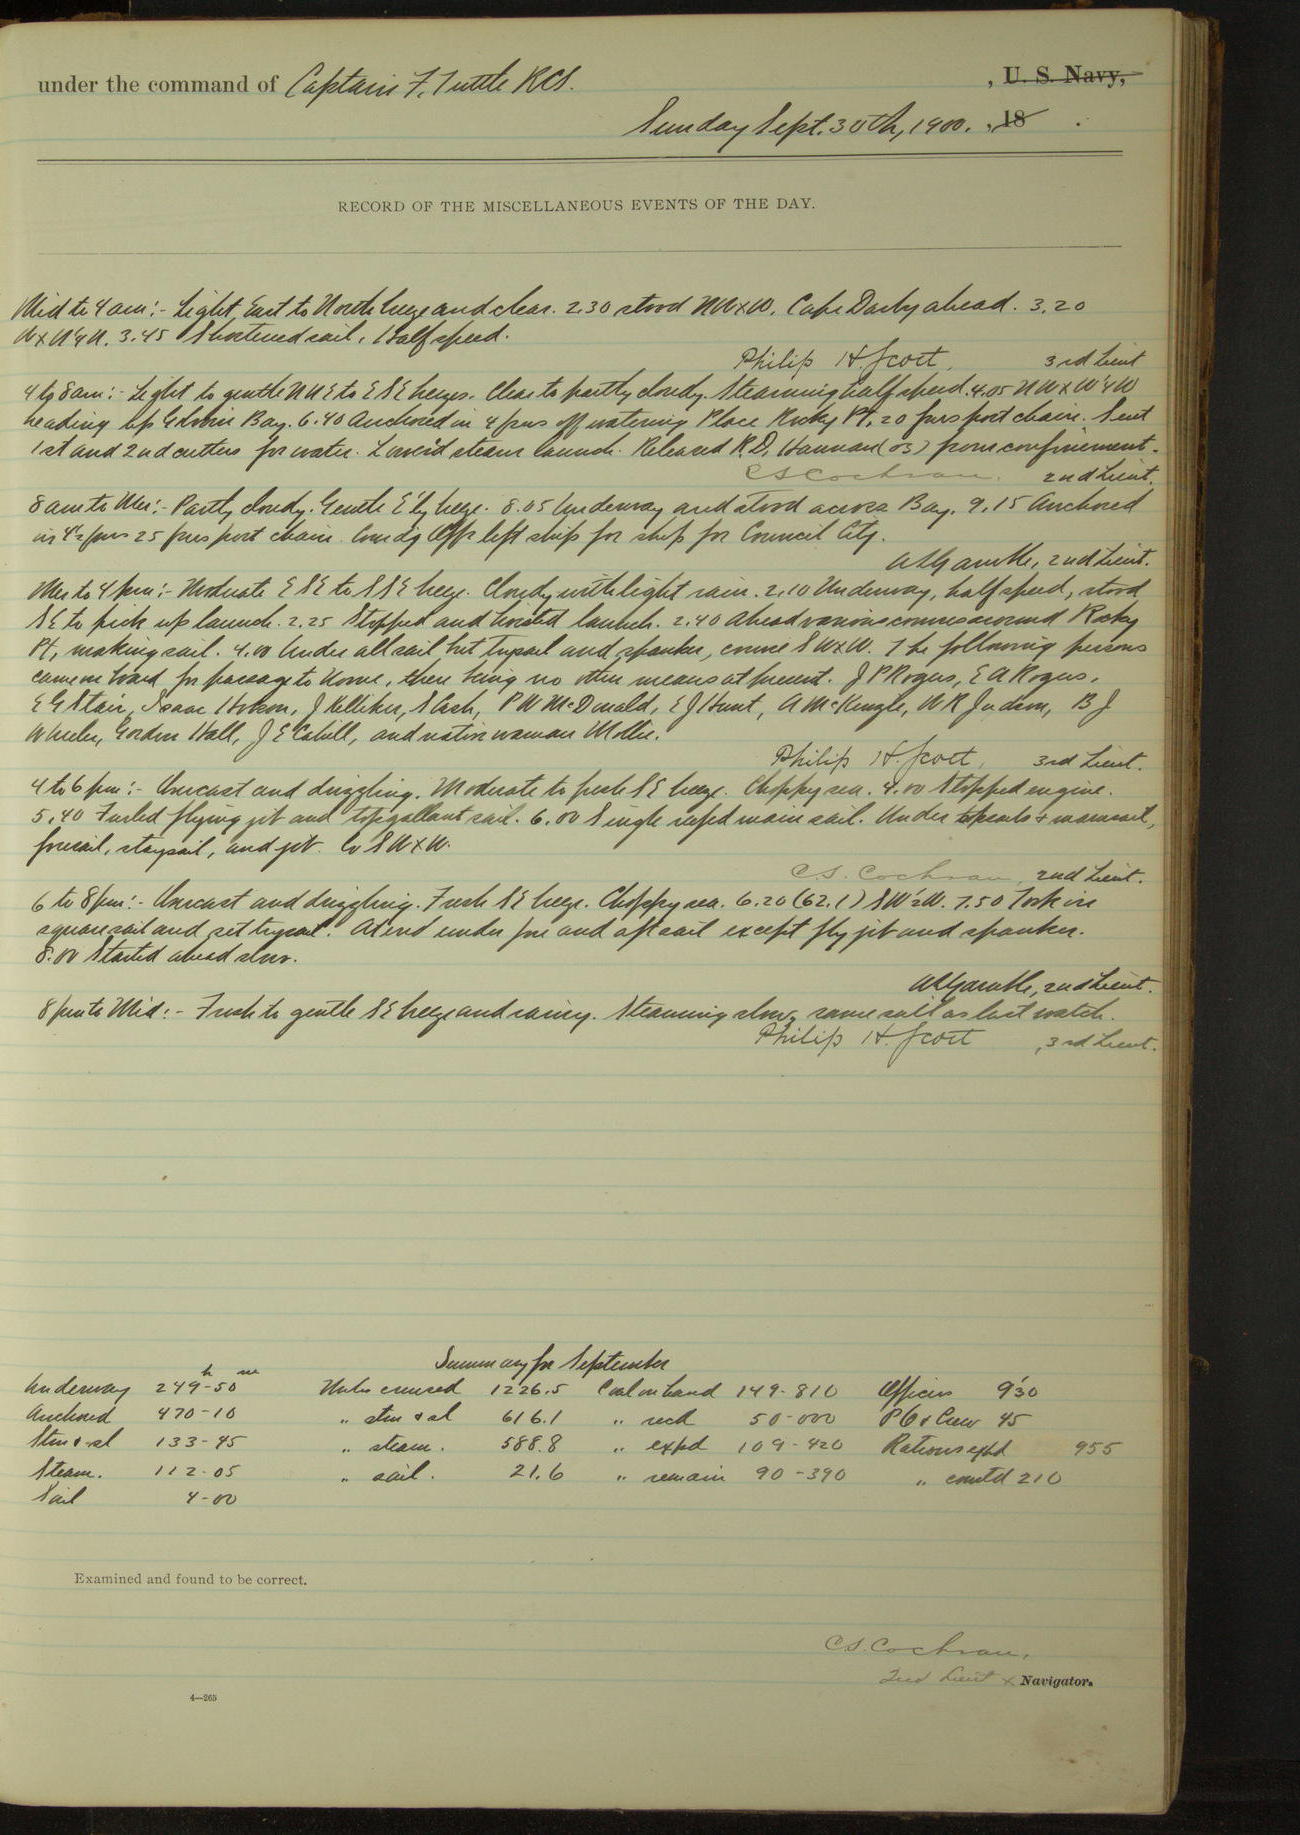 under the command of Captain F. Tuttle RCS. , U. S. Navy,
Sunday Sept. 30th, 1900. , 18 .
RECORD OF THE MISCELLANEOUS EVENTS OF THE DAY.
Mid to 4 am:- Light, East to North breeze and clear. 2.30 stood NWxW, Cape Darby ahead. 3.20
WxN¼N. 3.45 Shortened sail, Half speed.
Philip H. Scott, 3rd Lieut
4 to 8 am:- Light to gentle NNE to ESE breezes. Clear to partly cloudy. Steaming half speed. 4.05 NWxW¼W
heading up Golovin Bay. 6.40 Anchored in 4 fms off watering Place Rocky Pt, 20 fms port chain. Sent
1st and 2nd cutters for water. Lower'd steam launch. Released R.D. Hannan (OS) from confinement.
C S Cochran. 2nd Lieut.
8 am to Mer:- Partly cloudy. Gentle E'ly breeze. 8.05 Underway and stood across Bay. 9.15 Anchored
in 4½ fms 25 fms port chain. Comdg Offr left ship for Council City.
2nd Lieut.
Mer to 4 pm:- Moderate ESE to SSE breeze. Cloudy with light rain. 2.10 Underway, half speed, stood
SE to pick up launch. 2.25 Stopped and hoisted launch. 2.40 Ahead various courses around Rocky
Pt, making sail. 4.00 Under all sail but trysail and spanker, course SWxW. The following persons
came on board for passage to Nome, there being no other means at present. J P Rogers, E A Rogers,
E G Stair, Isaac Hobson, J Kelliher, S Cash, P W McDonald, E J Hunt, A McKenzie, W R Judson, B J
Wheeler, Gordon Hall, J E Cahill, and native woman Mollie.
Philip H. Scott, 3rd Lieut.
4 to 6 pm:- Overcast and drizzling. Moderate to fresh SE breeze. Choppy sea. 4.00 Stopped engine.
5.40 Furled flying jib and topgallant sail. 6.00 Single reefed main sail. Under topsails & mainsail,
foresail, staysail, and jib. Co SWxW.
C. S. Cochran 2nd Lieut.
6 to 8 pm:- Overcast and drizzling. Fresh SE breeze. Choppy sea. 6.20 (62.1) SW½W. 7.50 Took in
squaresail and set trysail. At end under fore and aft sail except fly jib and spanker.
8.00 Started ahead slow.
2nd Lieut.
8 pm to Mid:- Fresh to gentle SE breeze and rainy. Steaming slow, same sail as last watch.
Philip H. Scott ,3rd Lieut.
Summary for September
Underway 249h-50m Miles cruised 1226.5 Coal on hand 149-810 Officers 9'30
Anchored 470-10 " stm & sl 616.1 " recd 50-000 PO & Crew 45
Stm & sl 133-45 " steam. 588.8 " expd 109-420 Rations expd 955
Steam. 112-05 " sail. 21.6 " remain 90-390 " comtd 210
Sail 4-00
Examined and found to be correct.
C.S. Cochran,
2nd Lieut & Navigator.
4—265